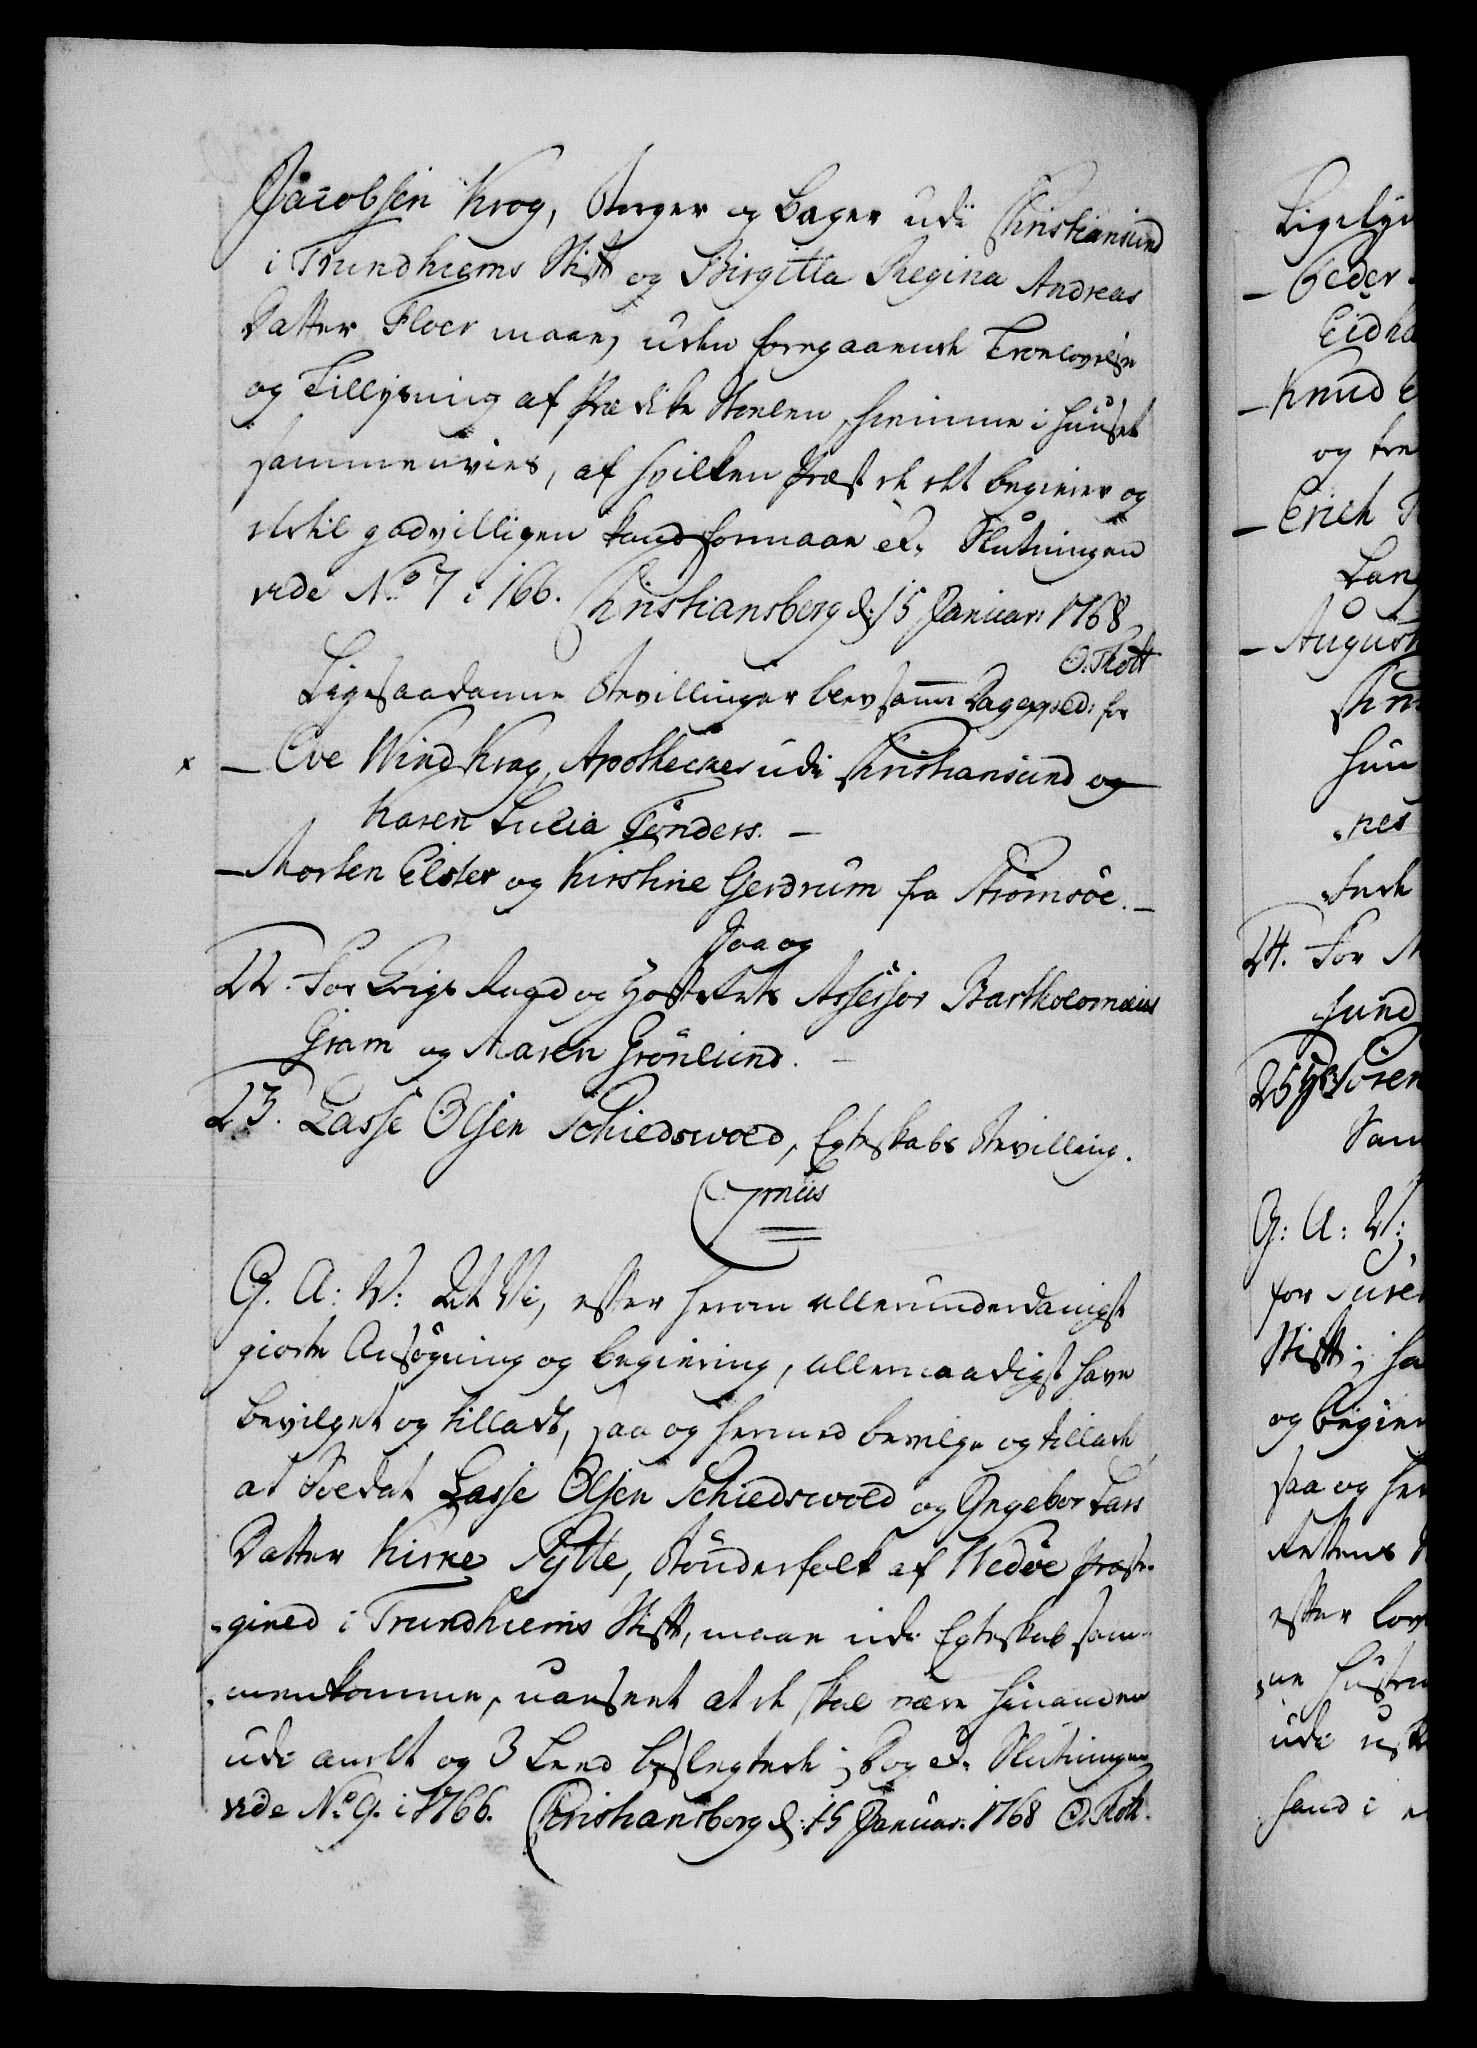 Jacobsen Krog, Borger og Bager udi Christiansund
i Trundhiems Stift og Birgitta Regina Andreas
Datter Floer maae, uden foregaaende Trolovelse
og Tillysning af Prædike Stoelen, hiemme i Huuset
sammenvies, af hvilken Præst de det begierer og
dertil godvilligen kand formaae &c. Slutningen
vide No 7 i 166. Christiansborg d: 15 Januar: 1768
O. Thott
Ligesaadanne Bevillinger blev samme Dag exped: for
x — Eve Wind Krag, Apothecker udi Christiansund og
Karen Lucia Tønders. —
— Morten Elster og Kirstine Gerdrum fra Strømsøe. —
Saa og
22. For Krigs Raad og Hof Rets Assessor Bartholomæus
Gram og Maren Grönlund. —
23. Lasse Olsen Schiedsvold, Egteskabs Bevilling.
G. A: V: At Vi, efter herom allerunderdanigst
giorte Ansøgning og begiering, allernaadigst have
bevilget og tilladt, saa og hermed bevilge og tillade
at Soldat Lasse Olsen Schiedsvold og Yngebor Lars
Datter Kirke Sytte, Bönderfolk af Wedøe Præste-
-gield i Trundhiems Stift, maae udi Egteskab sam-
-menkomme, uanseet at de skal være hinanden
udi andet og 3 Leed beslegtede; Dog &c. Slutningen
vide No 9. i 1766. Christiansborg d: 15 Januar: 1768 O. Thott.
Peder
Eid
— Knud
og
— Erich
— August
24. For
sund
25
G: A: V:
for Søren
Stift;
og Begier
saa og her
efter
udi